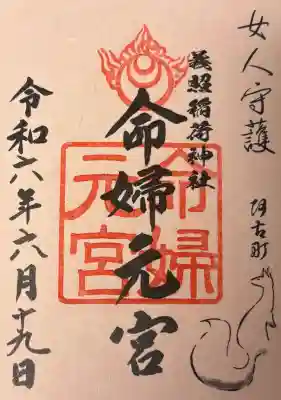 女人守護
阿古町
義照稲荷神社
命婦元宮
命婦
元宮
令和六年六月十九日